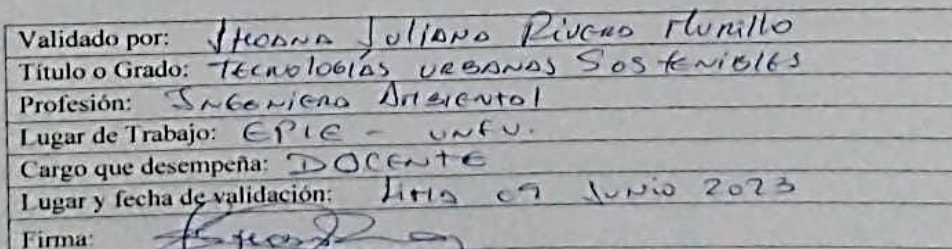 Validado por: Jhoana Juliana Rivera Murillo
Título o Grado: TECNOLOGÍAS URBANAS SOSTENIBLES
Profesión: INGENIERA AMBIENTAL
Lugar de Trabajo: EPIE - UNFV.
Cargo que desempeña: DOCENTE
Lugar y fecha de validación: Lima 09 JUNIO 2023
Firma: